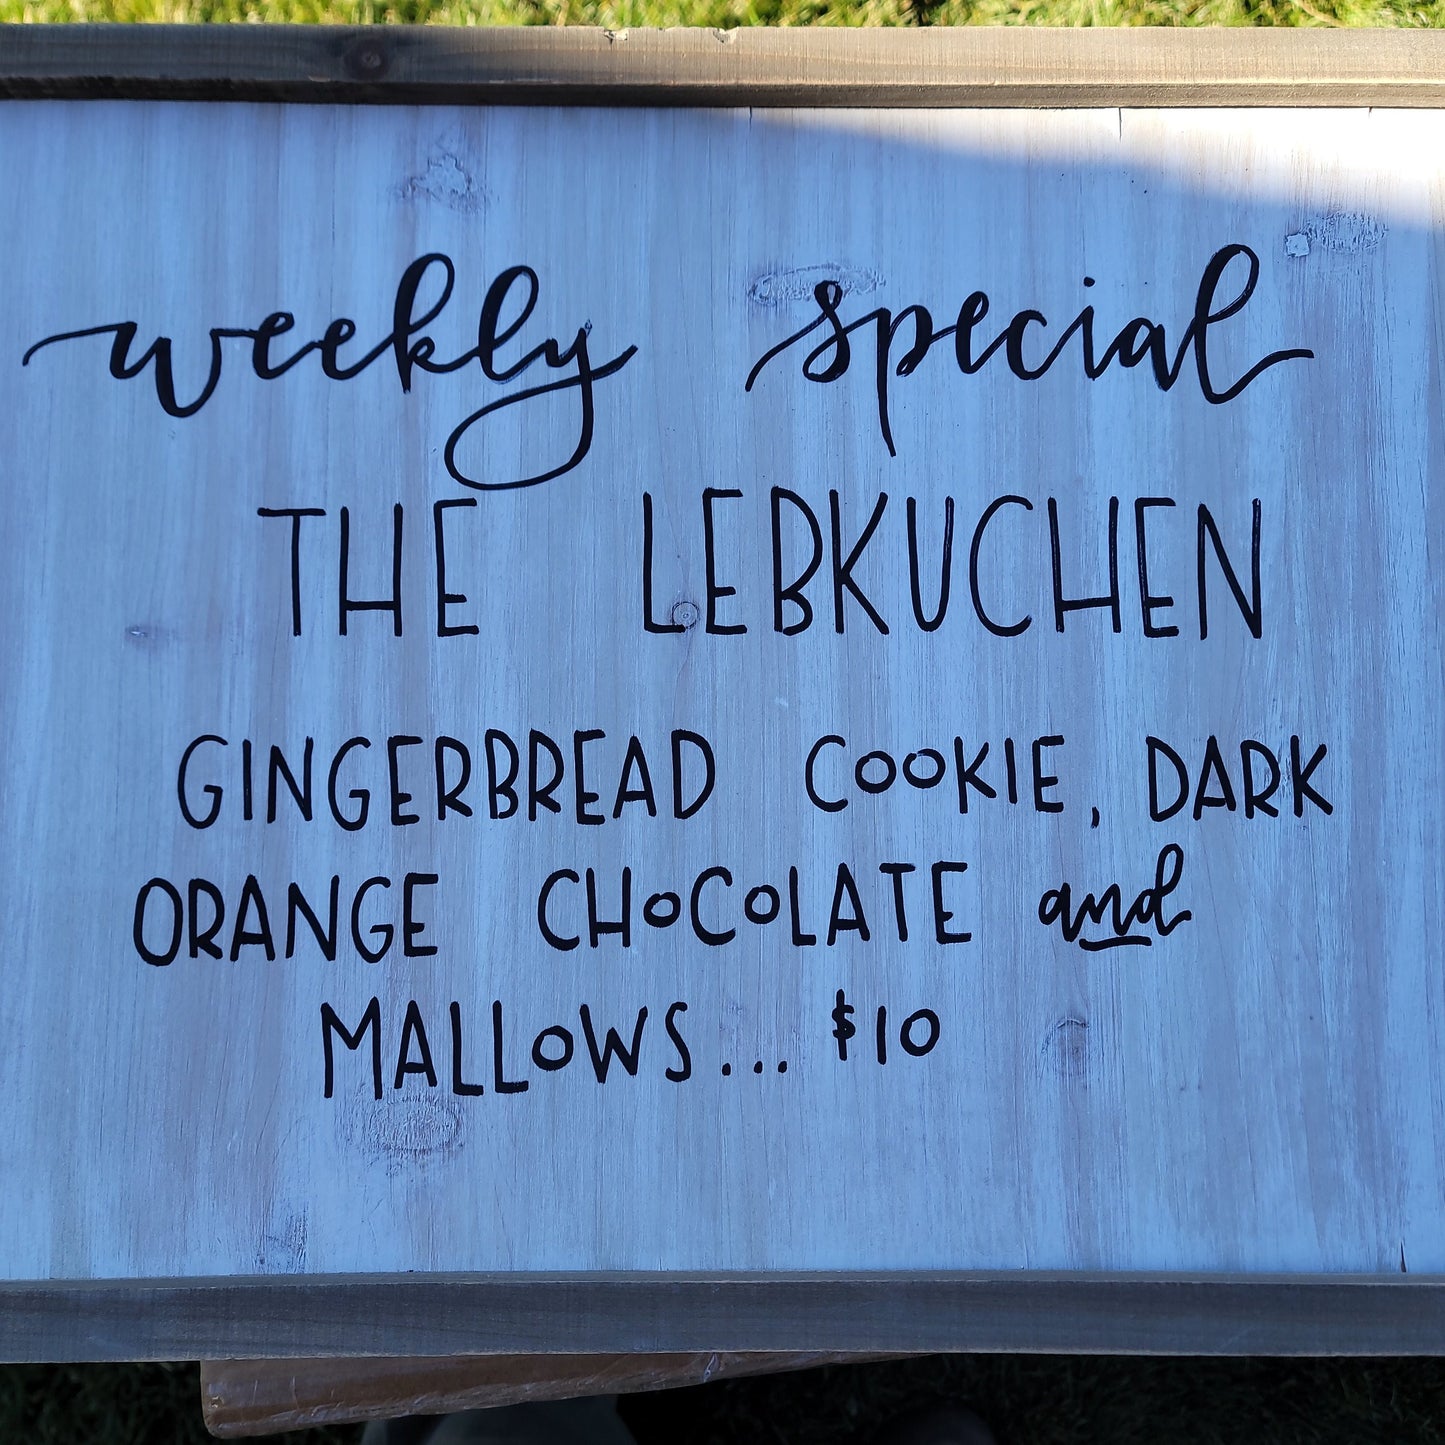 weekly special
THE LEBKUCHEN
GINGERBREAD COOKIE, DARK
ORANGE CHOCOLATE and
MALLOWS... $10